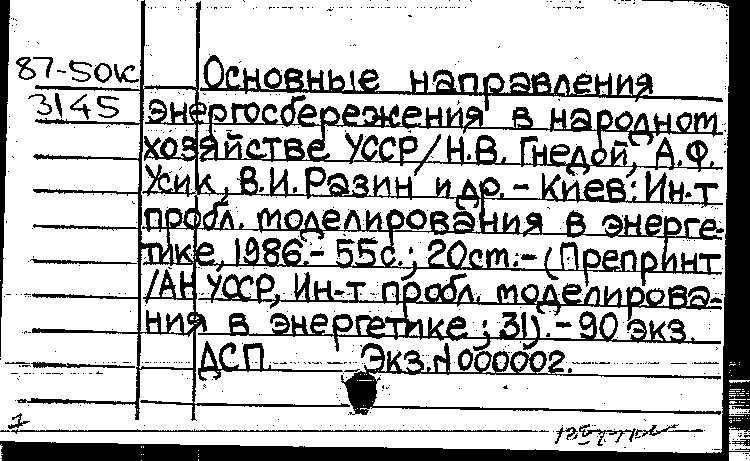 87-50к Основные направления
3145 энергосбережения в народном
хозяйстве УССР/Н.В. Гнедой, А.Ф.
Усик, В.И. Разин и др. - Киев: Ин-т
пробл. моделирования в энерге-
тике, 1986. - 55с.; 20см. - (Препринт
/АН УССР, Ин-т пробл. моделирова-
ния в энергетике; 31). - 90 экз.
ДСП. Экз.N 000002.